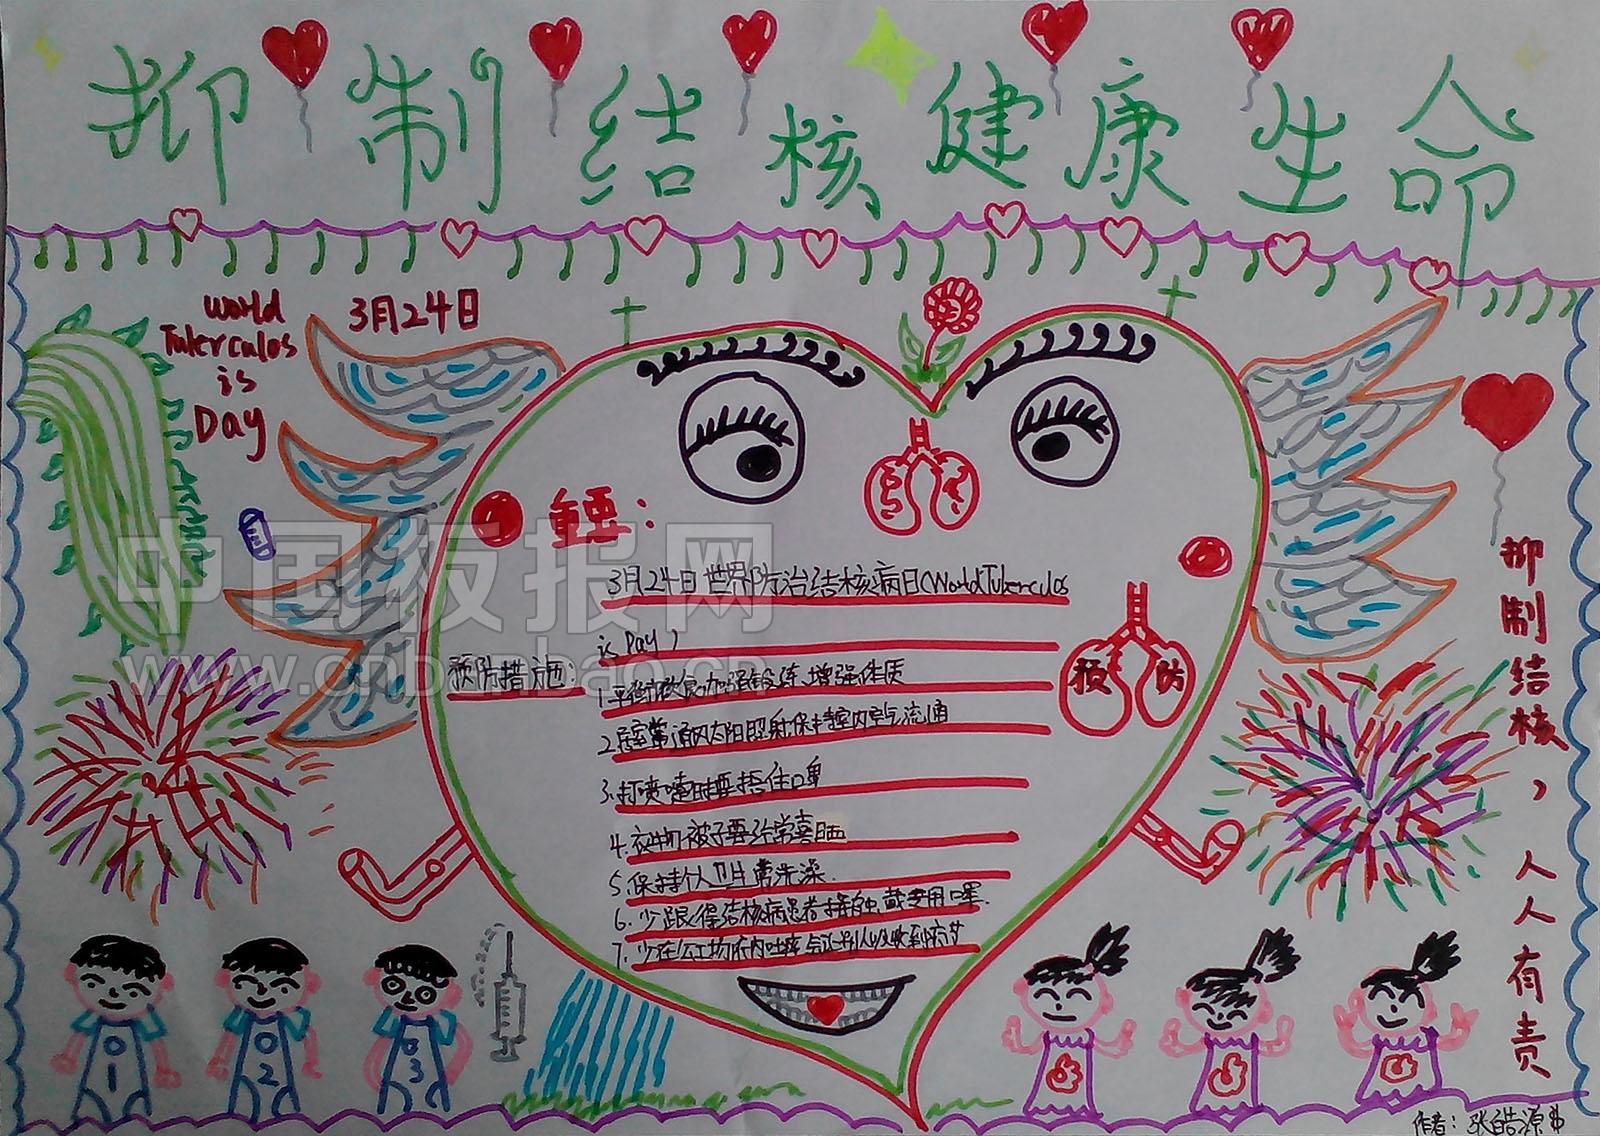 抑制结核健康生命
World
Tulerculos
is
Day
3月24日
重要：
3月24日世界防治结核病日(World Tulerculos
is Day)
预防措施：
1.平衡饮食,加强锻练,增强体质
2.居室常通风太阳照射,保持室内空气流通
3.打喷嚏时要捂住口鼻
4.衣物,被子要经常喜晒
5.保持个人卫生,常洗澡.
6.少跟得结核病患者接触,戴专用口罩.
7.少在公工场所内吐痰
预防
抑制结核，人人有责
01
02
03
作者：张皓源
中国板报网
www.cnbanbao.cn